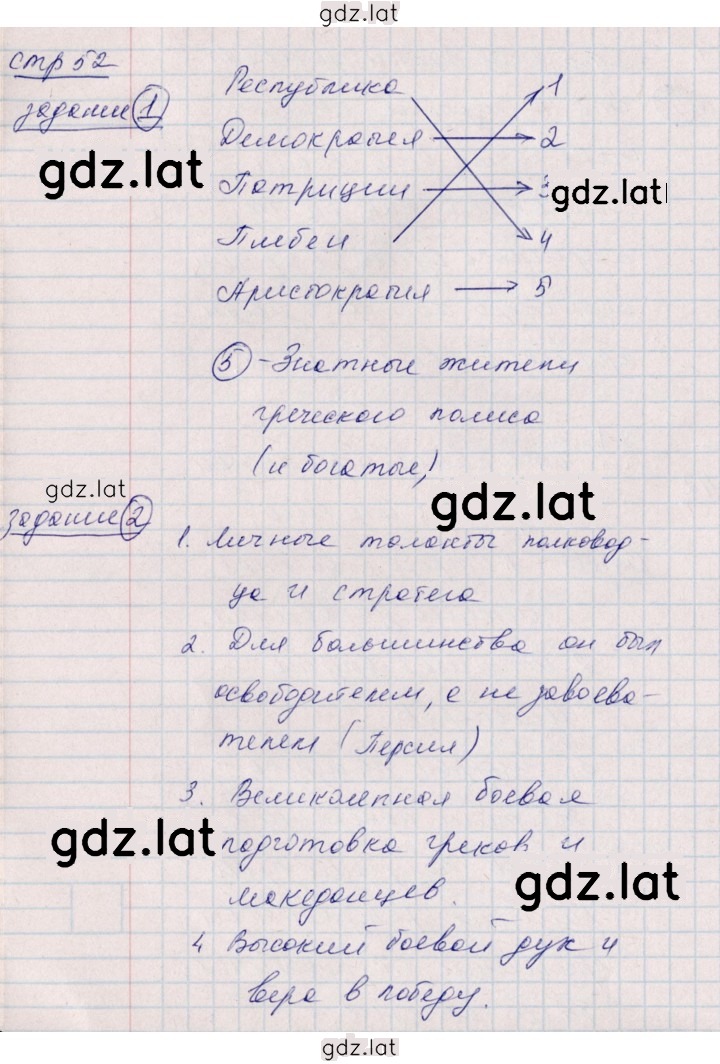 gdz.lat
стр 52
задание 1
Республика 1
Демократия 2
gdz.lat
Патриции 3
gdz.lat
Плебеи 4
Аристократия 5
5 - Знатные жители
греческого полиса
(и богатые)
gdz.lat
gdz.lat
задание 2
1. Личные таланты полковод-
ца и стратега
2. Для большинства он был
освободителем, а не завоева-
телем (Персия)
3. Великолепная боевая
gdz.lat
подготовка греков и
gdz.lat
македонцев.
4 Высокий боевой дух и
вера в победу.
gdz.lat